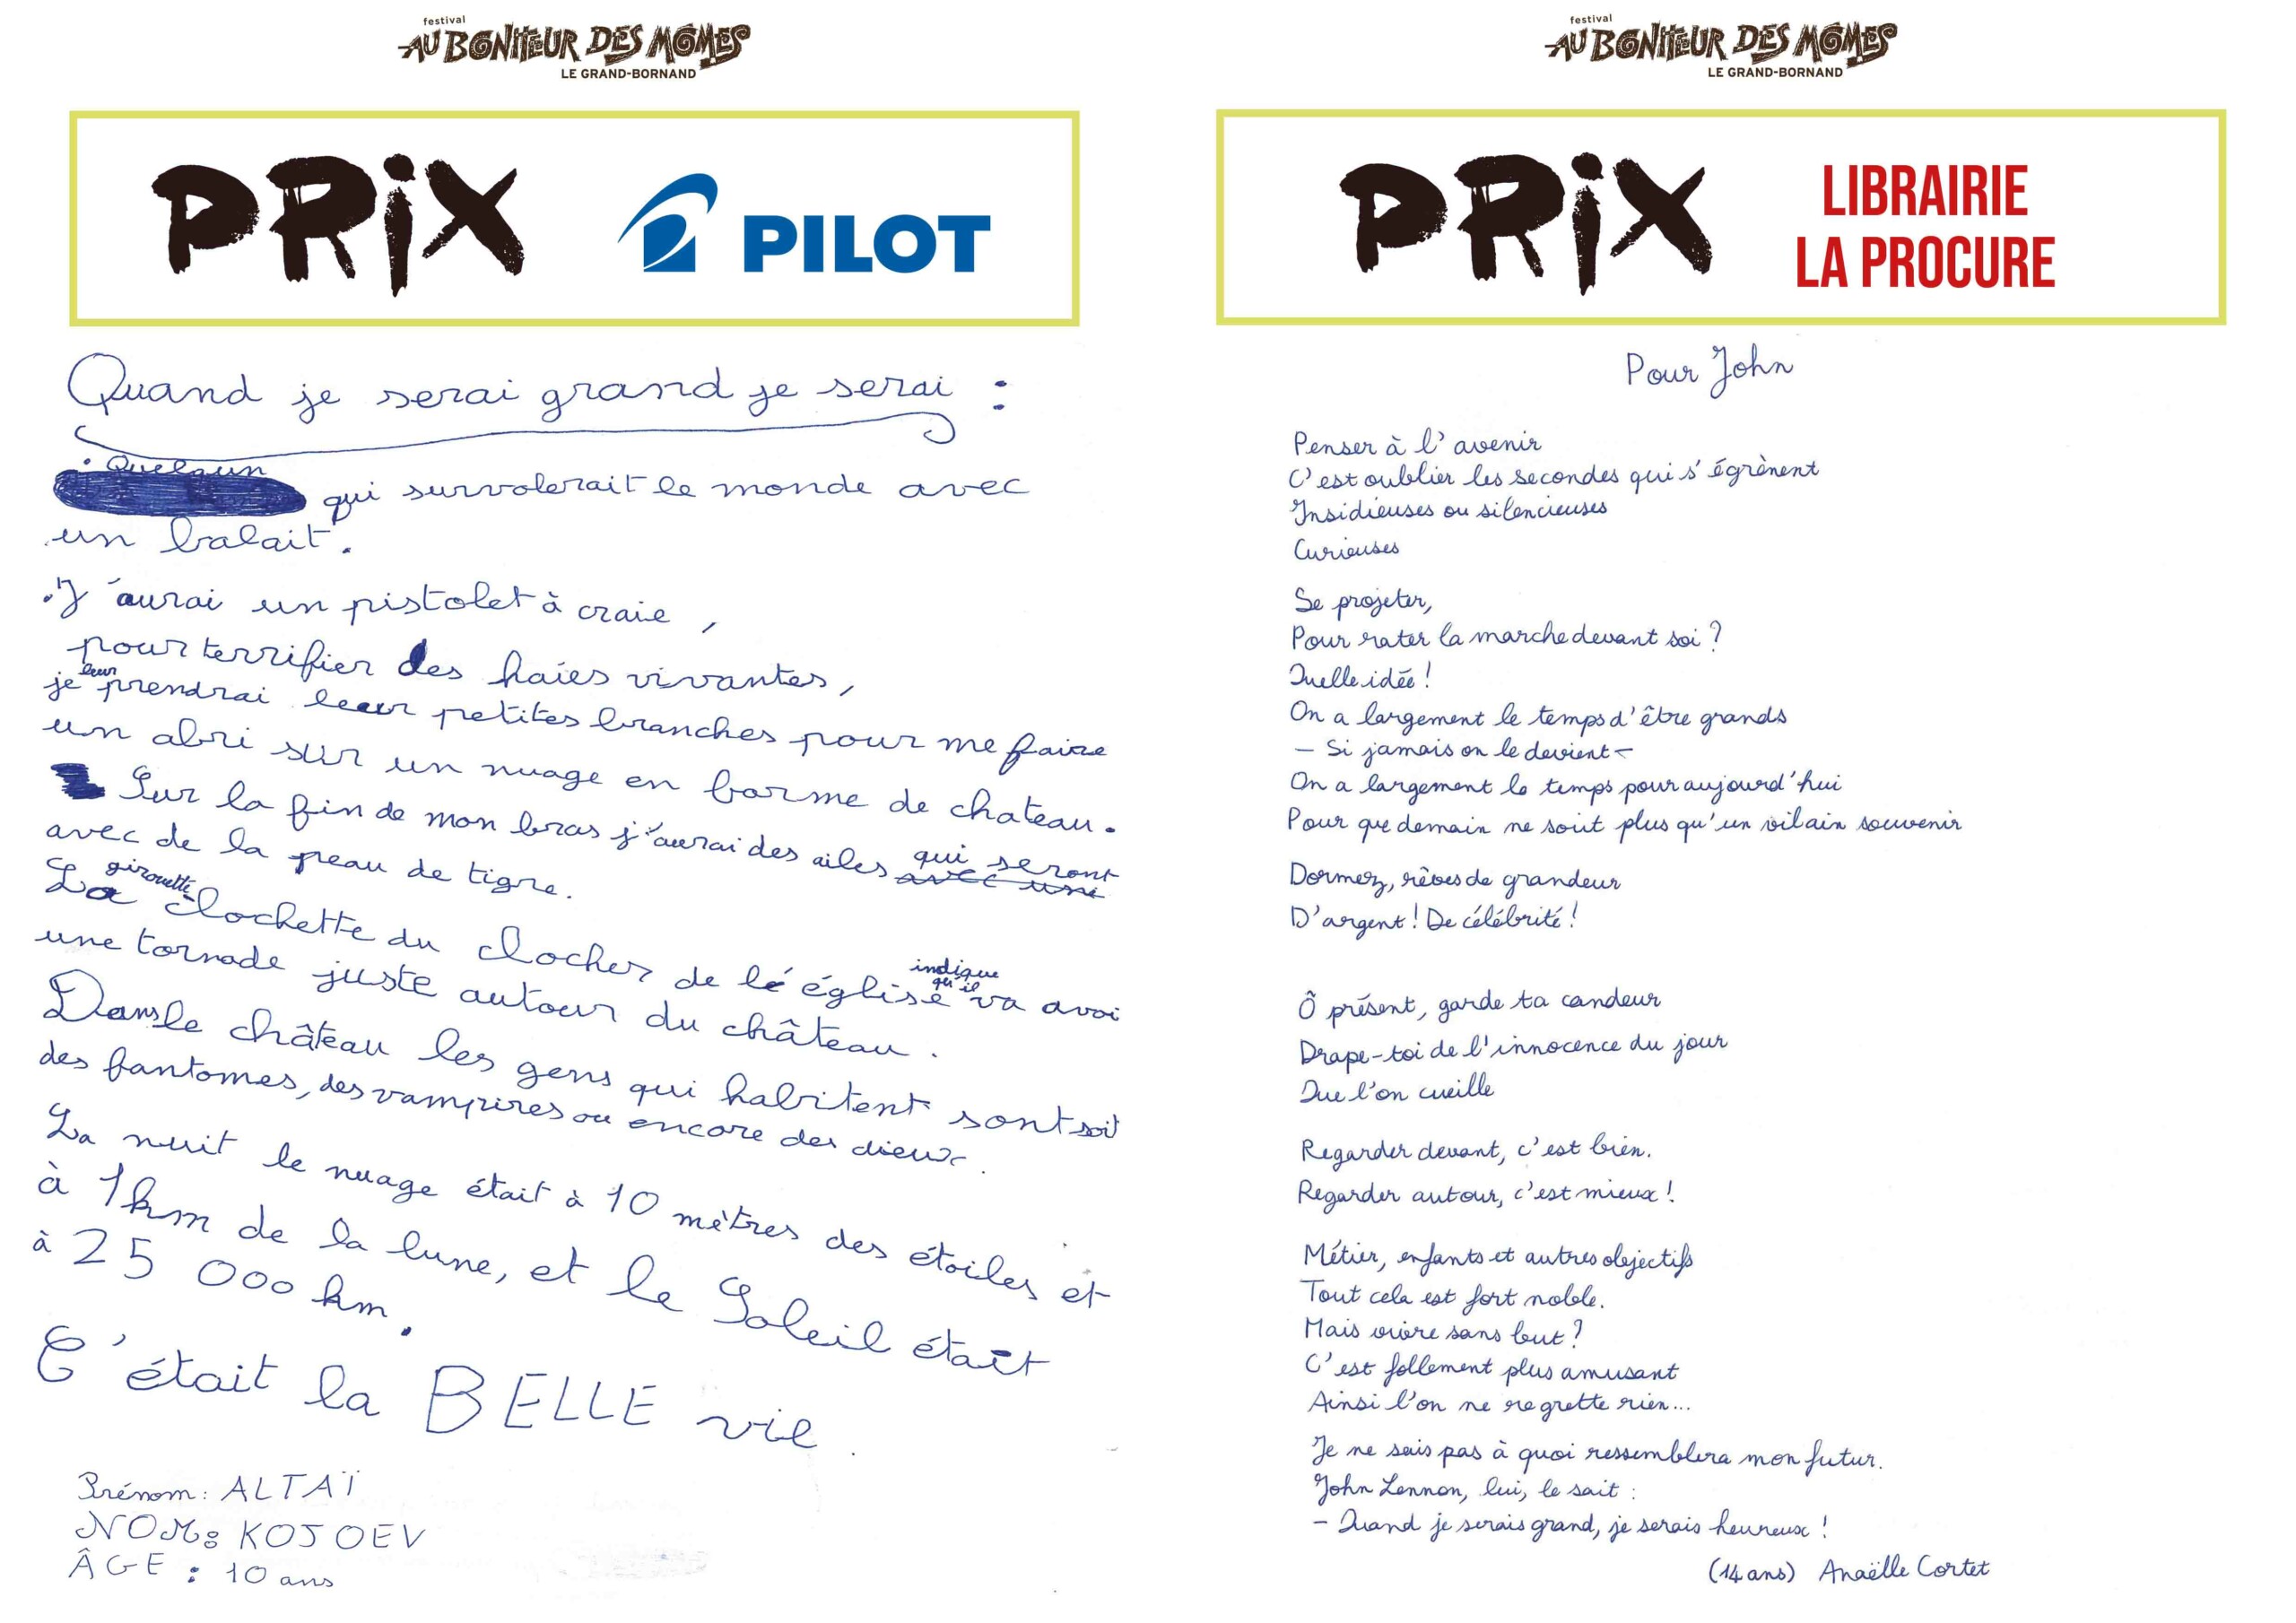 festival
AU BONHEUR DES MÔMES
LE GRAND-BORNAND
PRiX PILOT
Quand je serai grand je serai :
• Quelqun
qui survolerait le monde avec
un balait.
• J'aurai un pistolet à craie,
pour terrifier des haies vivantes,
je leur prendrai leur petites branches pour me faire
un abri sur un nuage en forme de chateau.
Sur la fin de mon bras j'aurai des ailes qui seront
avec une
avec de la peau de tigre.
La girouette clochette du clocher de lé église indique qu'il va avoi
une tornade juste autour du château.
Dans le château les gens qui habitent sont soit
des fantomes, des vampires ou encore des dieux.
La nuit le nuage était à 10 mètres des étoiles et
à 1km de la lune, et le Soleil était
à 25 000 km.
C'était la BELLE vie.
Prénom: ALTAÏ
NOM: KOJOEV
ÂGE : 10 ans
festival
AU BONHEUR DES MÔMES
LE GRAND-BORNAND
PRiX LIBRAIRIE
LA PROCURE
Pour John
Penser à l'avenir
C'est oublier les secondes qui s'égrènent
Insidieuses ou silencieuses
Curieuses
Se projeter,
Pour rater la marche devant soi ?
Quelle idée !
On a largement le temps d'être grands
– Si jamais on le devient –
On a largement le temps pour aujourd'hui
Pour que demain ne soit plus qu'un vilain souvenir
Dormez, rêves de grandeur
D'argent ! De célébrité !
Ô présent, garde ta candeur
Drape-toi de l'innocence du jour
Que l'on cueille
Regarder devant, c'est bien.
Regarder autour, c'est mieux !
Métier, enfants et autres objectifs
Tout cela est fort noble.
Mais vivre sans but ?
C'est follement plus amusant
Ainsi l'on ne regrette rien...
Je ne sais pas à quoi ressemblera mon futur.
John Lennon, lui, le sait :
– Quand je serais grand, je serais heureux !
(14 ans) Anaëlle Cortet